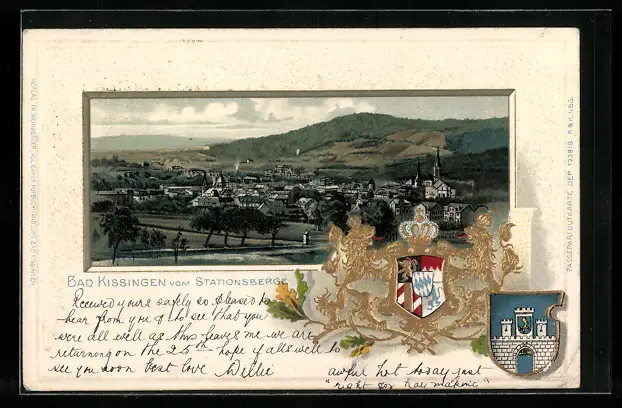 BAD KISSINGEN VOM STATIONSBERGE
Received yours safely so pleased to
hear from you & to see that you
were all well as this leaves me we are
returning on the 25th hope if all's well to
see you soon best love Willie
awful hot today just
"right for hay making"
PASSEPARTOUTKARTE DEP. 123818. R & K. NBG.
VERLAG FR. WEINBERGER, KGL. BAYER. HOFBUCHHANDLUNG, BAD KISSINGEN